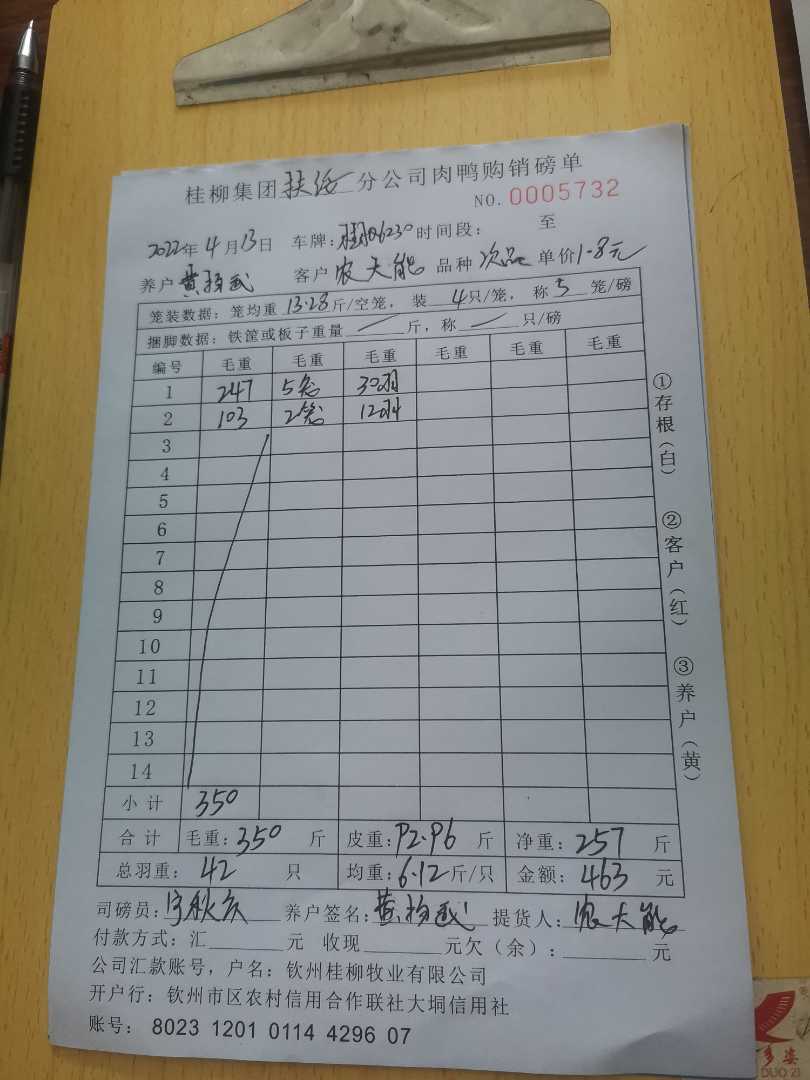 桂柳集团扶绥分公司肉鸭购销磅单
NO. 0005732
2022年4月13日 车牌: 时间段: 至
养户 黄 客户 农天能 品种 次品 单价 1.8元
笼装数据: 笼均重 13.28 斤/空笼, 装 4 只/笼, 称 5 笼/磅
捆脚数据: 铁筐或板子重量 / 斤, 称 / 只/磅
编号 毛重 毛重 毛重 毛重 毛重 毛重
1 247 5笼 30羽
2 103 2笼 12羽
3
4
5
6
7
8
9
10
11
12
13
14
小计 350
合计 毛重: 350 斤 皮重: 92.96 斤 净重: 257 斤
总羽重: 42 只 均重: 6.12 斤/只 金额: 463 元
司磅员: 养户签名: 黄 提货人: 农天能
付款方式: 汇 元 收现 元欠(余): 元
公司汇款账号, 户名: 钦州桂柳牧业有限公司
开户行: 钦州市区农村信用合作联社大垌信用社
账号: 8023 1201 0114 4296 07
①存根(白)
②客户(红)
③养户(黄)
多姿
DUO ZI